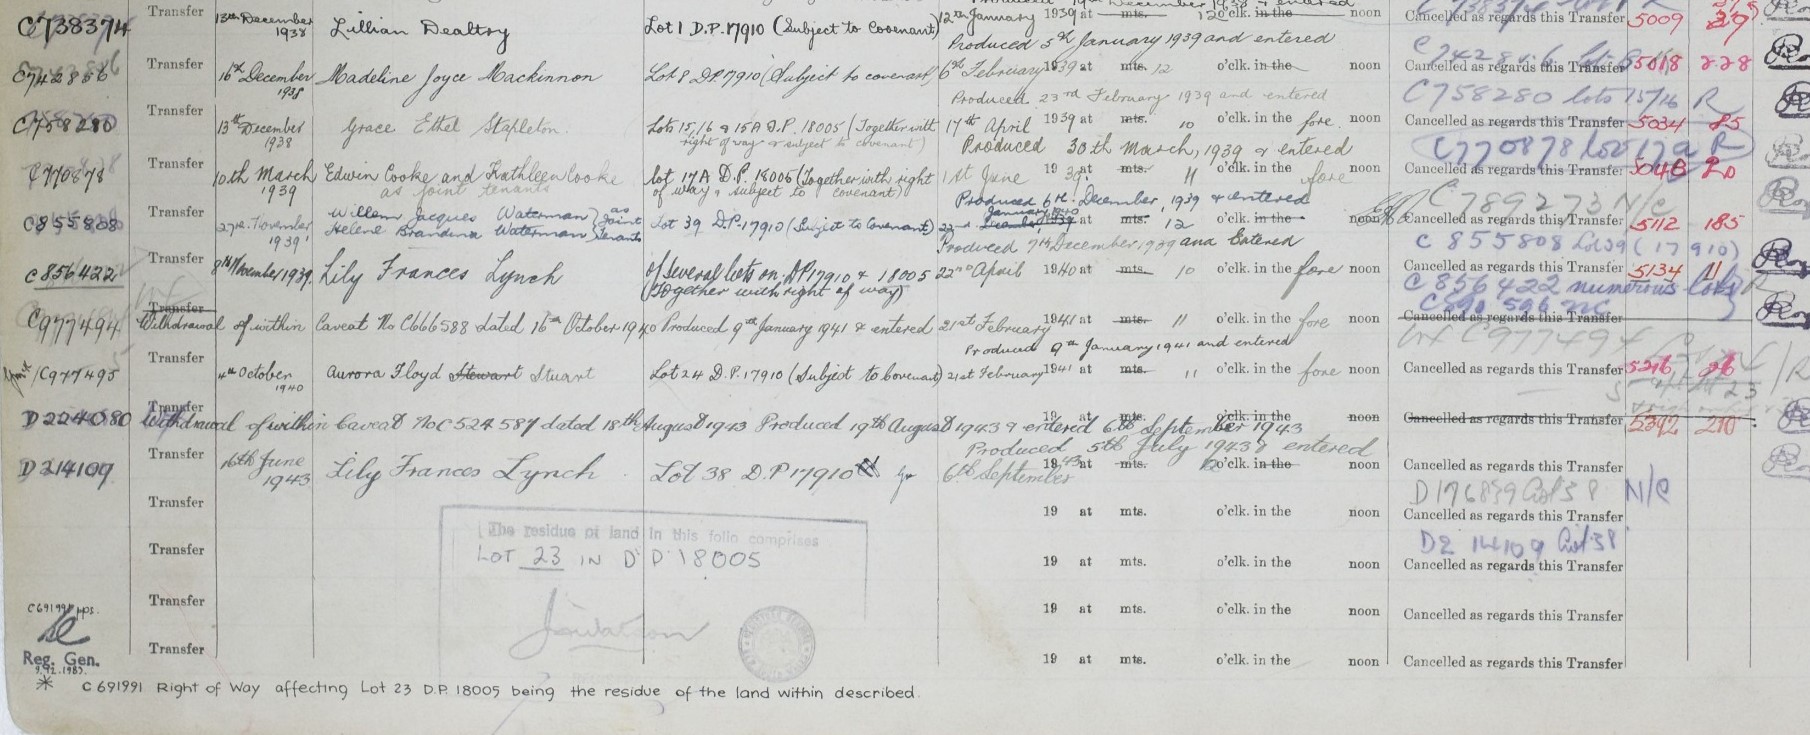 C738374 Transfer 13th December 1938 Lillian Dealtry Lot 1 D.P. 17910 (Subject to Covenant) 12th January 1939 at mts. 12 o'clk. in the noon Cancelled as regards this Transfer 5009 27
Produced 5th January 1939 and entered
C742856 Transfer 16th December 1938 Madeline Joyce Mackinnon Lot 8 D.P. 17910 (Subject to covenant) 6th February 1939 at mts. 12 o'clk. in the noon Cancelled as regards this Transfer 5018 228
Produced 23rd February 1939 and entered C758280 lots 15/16 R
C758280 Transfer 13th December 1938 Grace Ethel Stapleton. Lots 15, 16 & 15A D.P. 18005 (Together with right of way & subject to covenant) 17th April 1939 at mts. 10 o'clk. in the fore noon Cancelled as regards this Transfer 5034 85
Produced 30th March, 1939 & entered C770878 lot 17a R
C770878 Transfer 10th March 1939 Edwin Cooke and Kathleen Cooke as joint tenants Lot 17A D.P. 18005 (Together with right of way & subject to covenant) 1st June 1939 at mts. 11 o'clk. in the fore noon Cancelled as regards this Transfer 5048 20
Produced 6th December 1939 & entered C789273 N/C
C855808 Transfer 27th November 1939 Willem Jacques Waterman Helene Brandina Waterman } as Joint Tenants Lot 39 D.P. 17910 (Subject to Covenant) 22nd January 1940 at mts. 12 o'clk. in the noon Cancelled as regards this Transfer 5112 185
Produced 7th December 1939 and Entered C855808 Lot 39 (17910)
C856422 Transfer 8th November 1939. Lily Frances Lynch Of several lots on DP 17910 & 18005 (Together with right of way) 22nd April 1940 at mts. 10 o'clk. in the fore noon Cancelled as regards this Transfer 5134 11
C856422 numerous lots R
Transfer
C977494 Withdrawal of within Caveat No C666588 dated 16th October 1940 Produced 9th January 1941 & entered 21st February 1941 at mts. 11 o'clk. in the fore noon Cancelled as regards this Transfer
Produced 9th January 1941 and entered C977494
C977495 Transfer 4th October 1940 Aurora Floyd Stewart Stuart Lot 24 D.P. 17910 (Subject to Covenant) 21st February 1941 at mts. 11 o'clk. in the fore noon Cancelled as regards this Transfer 5216 26
Transfer 19 at mts. o'clk. in the noon Cancelled as regards this Transfer
D224080 Withdrawal of within Caveat No C524587 dated 18th August 1943 Produced 19th August 1943 & entered 6th September 1943 5392 210
Produced 5th July 1943 & entered
D214109 Transfer 16th June 1943 Lily Frances Lynch Lot 38 D.P 17910 6th September 1943 at mts. 12 o'clk. in the noon Cancelled as regards this Transfer
D176839 Lot 38 N/C
Transfer 19 at mts. o'clk. in the noon Cancelled as regards this Transfer
The residue of land in this folio comprises
LOT 23 IN D P 18005
D214109 Lot 38
Transfer 19 at mts. o'clk. in the noon Cancelled as regards this Transfer
Transfer 19 at mts. o'clk. in the noon Cancelled as regards this Transfer
C691991
Transfer 19 at mts. o'clk. in the noon Cancelled as regards this Transfer
Reg. Gen.
* C691991 Right of Way affecting Lot 23 D.P. 18005 being the residue of the land within described.